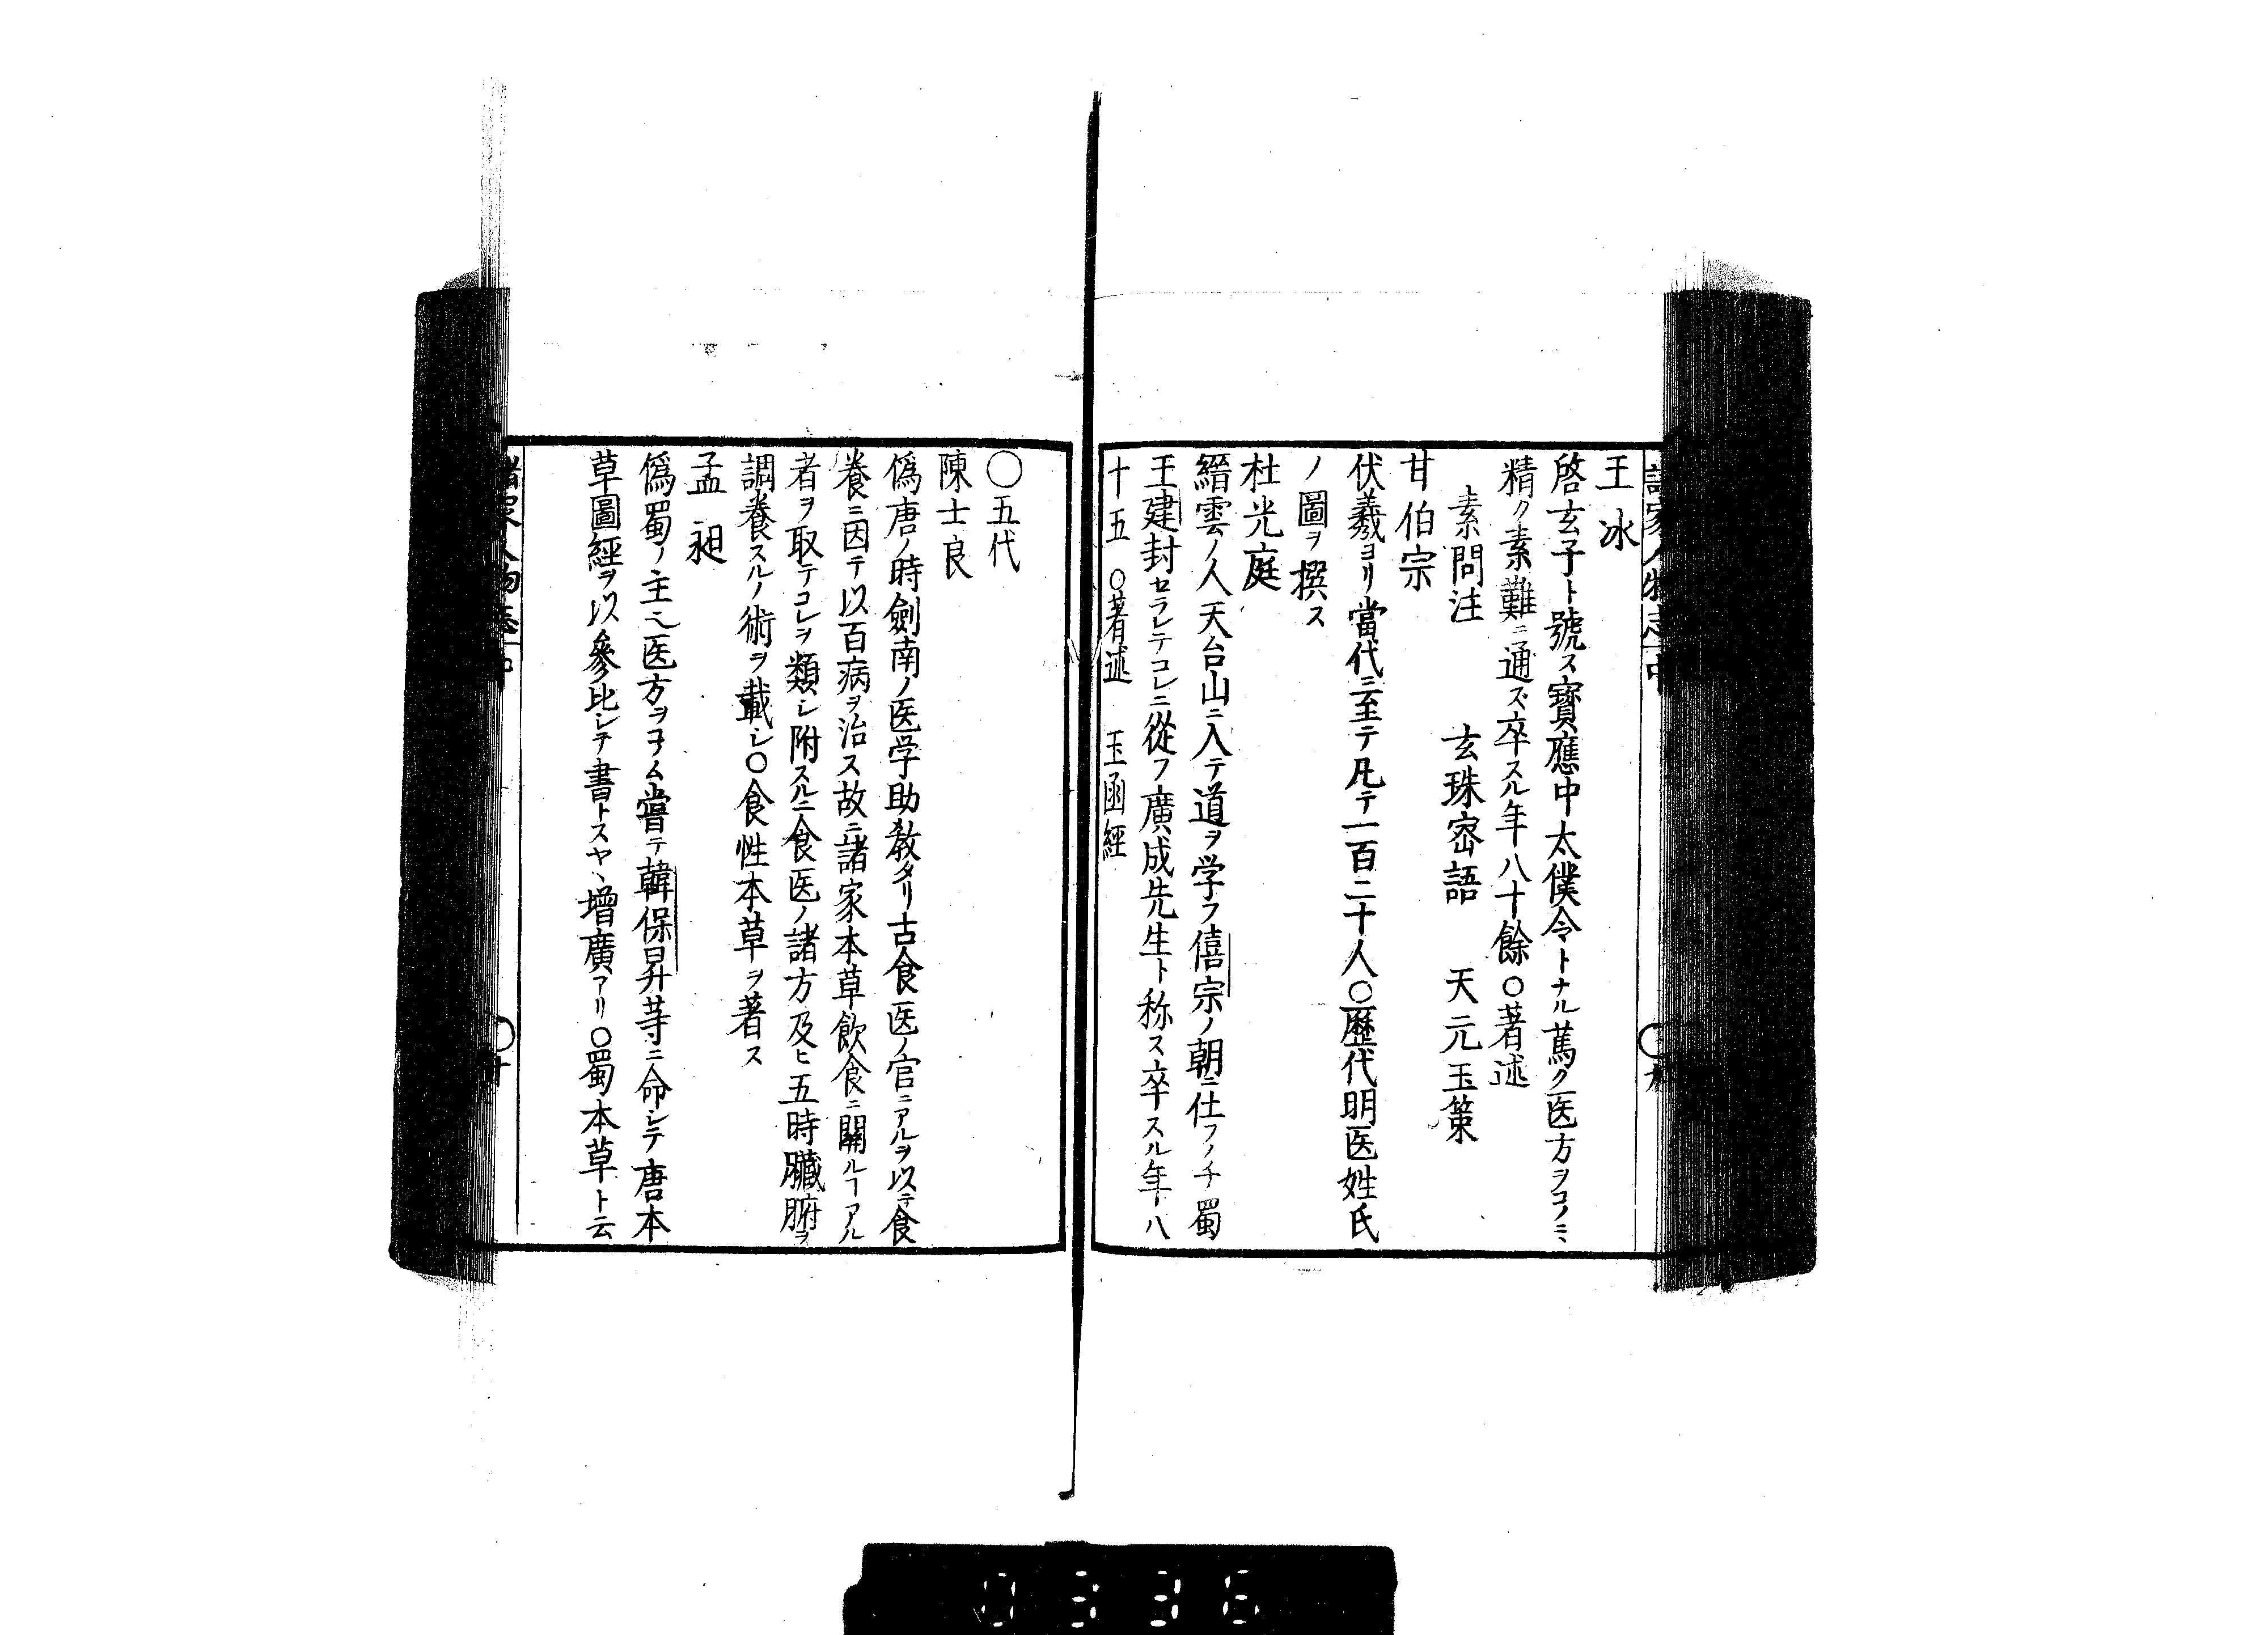 王冰
啓玄子ト號ス寳應中太僕令トナル篤ク医方ヲコノミ
精ク素難ニ通ズ卒スル年八十餘○著述
素問注　玄珠密語　天元玉策
甘伯宗
伏羲ヨリ當代ニ至テ凡テ一百二十人○歷代明医姓氏
ノ圖ヲ撰ス
杜光庭
縉雲ノ人天台山ニ入テ道ヲ学フ僖宗ノ朝ニ仕フノチ蜀
王建封セラレテコレニ從フ廣成先生ト称ス卒スル年八
十五　○著述　玉函經
○五代
陳士良
僞唐ノ時劍南ノ医学助教タリ古食医ノ官ニアルヲ以テ食
養ニ因テ以百病ヲ治ス故ニ諸家本草飲食ニ關ルヿアル
者ヲ取テコレヲ類シ附スルニ食医ノ諸方及ヒ五時臓腑ヲ
調養スルノ術ヲ載シ○食性本草ヲ著ス
孟昶
僞蜀ノ主也医方ヲコノム嘗テ韓保昇等ニ命シテ唐本
草圖經ヲ以參比シテ書トスヤヽ增廣アリ○蜀本草ト云